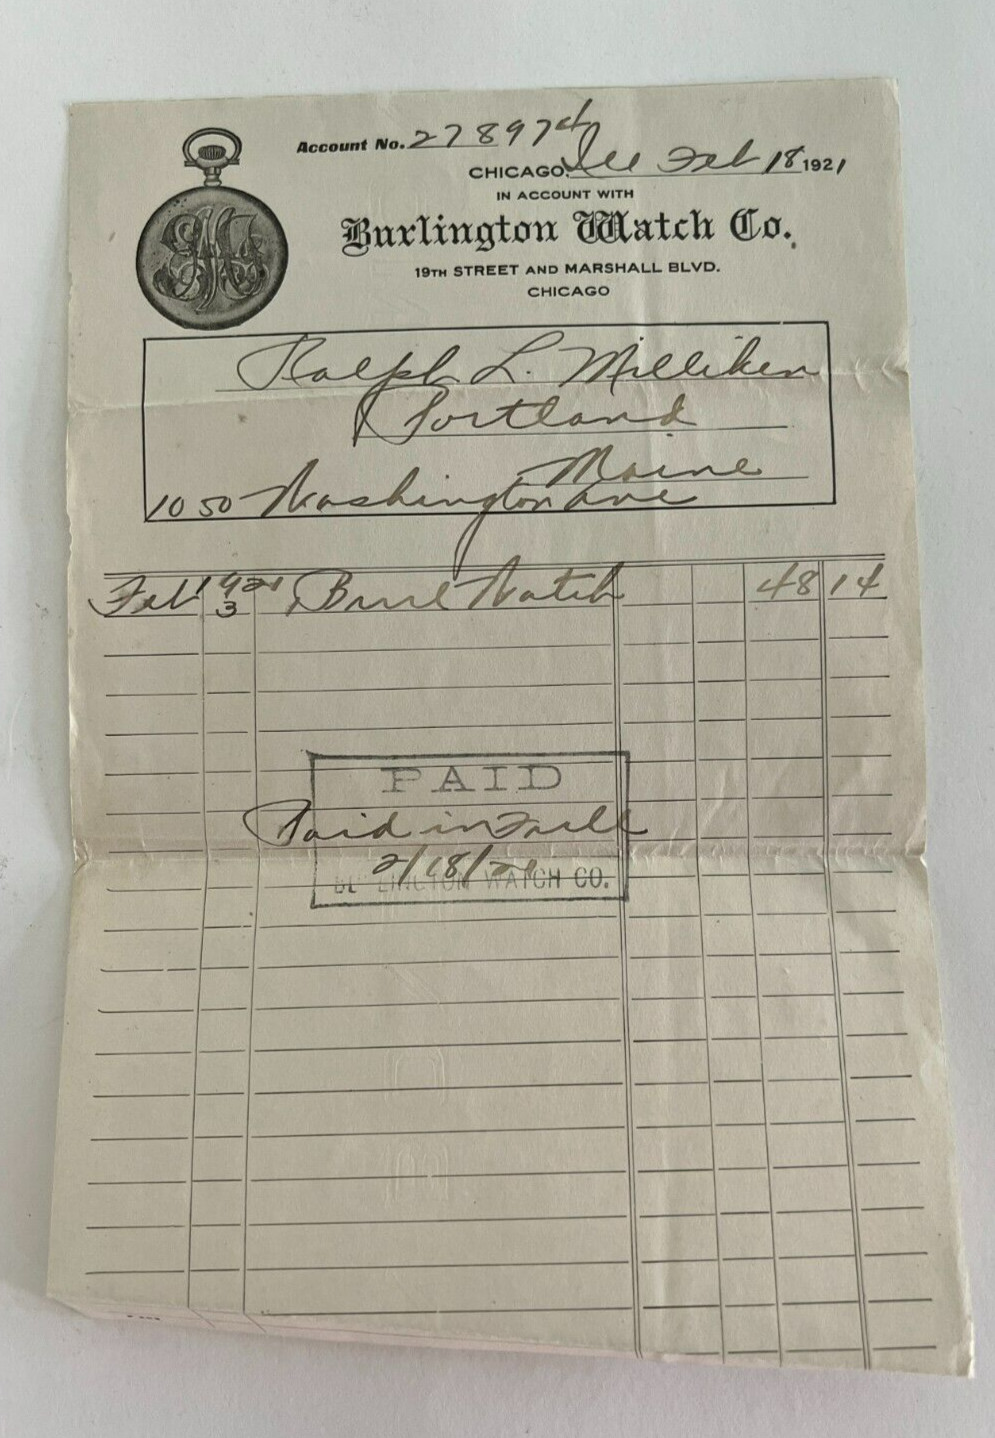 Account No. 278974
CHICAGO, Ill Feb 18 1921
IN ACCOUNT WITH
Burlington Watch Co.
19TH STREET AND MARSHALL BLVD.
CHICAGO
Ralph L. Milliken
Portland
Maine
1050 Washington Ave
Feb 1921 3 Burl Watch 48 14
PAID
Paid in Full
2/18/21
BURLINGTON WATCH CO.